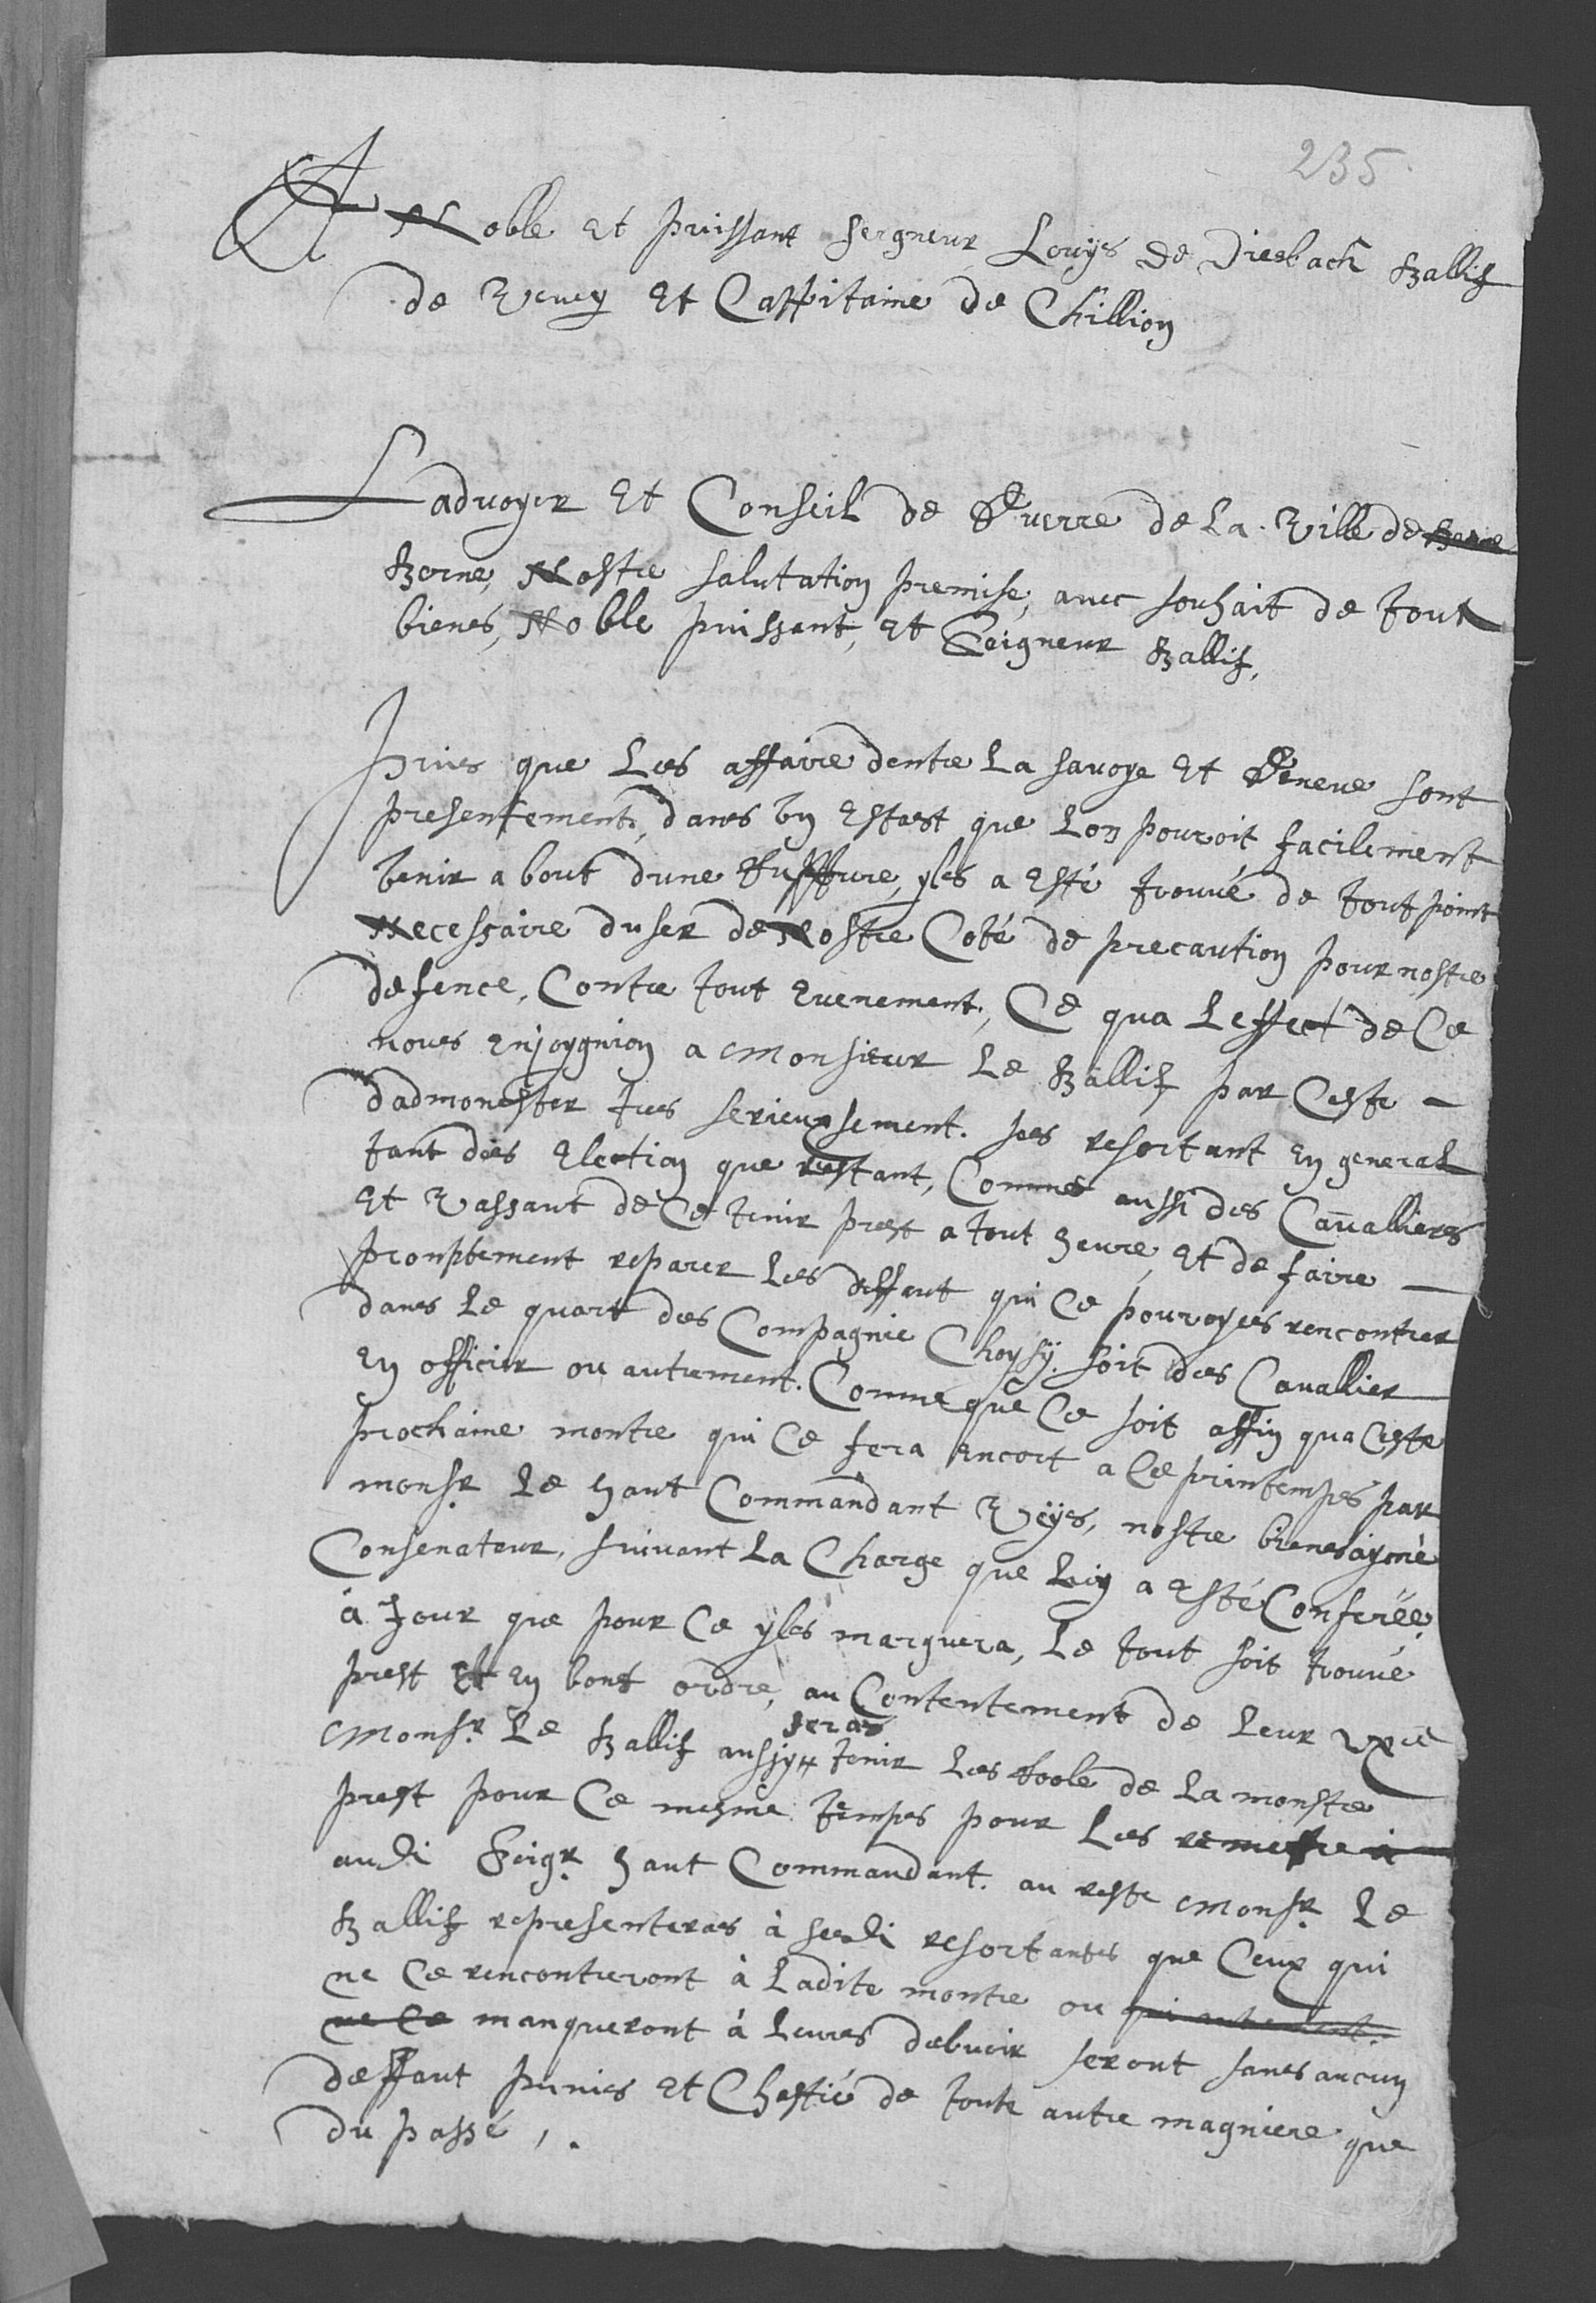 235
A Noble et puissant seigneur Louÿs de Diesbach Ballif
de Vevey et Cappitaine de Chillion
Ladvoyer et Conseil de Guerre de la Ville de Berne
Berne, Nostre salutation premise, avec souhait de tout
biens, Noble puissant, et Seigneur Ballif,
Puis que les affaire dentre la savoye et Geneve sont
presentement, dans un estast que lon pouroit facilement
venir a bout dune , yls a esté trouvé de tout point
Necessaire duser de Nostre Coté de precaution pour nostre
defence, Contre tout evenement, Ce qua leffect de Ce
nous enjoygnion a Monsieur le Ballif par Ceste -
dadmonester tres serieusement. ses resortant en general
tant des Election que restant, Comme aussi des Cavalliers
et Vassant de Ce tenir prest a tout heure, et de faire -
promptement reparer les deffaut qui Ce pouroyes rencontrer
dans le quart des Compagnie Choysÿ. soit des Cavallier
en officier ou autrement. Comme que Ce soit affin qua Ceste
prochaine montre qui Ce fera encort a Ce printemps par
monsr. le haut Commandant Weÿs, nostre biensaymé
Consenateur, suivant la Charge que luy a esté Conferée
a Jour que pour Ce yls marquera, le tout soit trouvé
prest et en bons ordre, au Contentement de leur Exce
Monsr. le Ballif aussy feras tenir les roole de la monstre
prest pour Ce mesme temps pour les remestre à
audi Seigr. haut Commandant. au reste Monsr. le
Ballif representeras à sesdi resortants que Ceux qui
ne Ce rencontreront à ladite montre ou
ne Ce manqueront à leurs debvoir seront sans aucun
deffaut punies et Chastié de toute autre magniere que
du passé, .